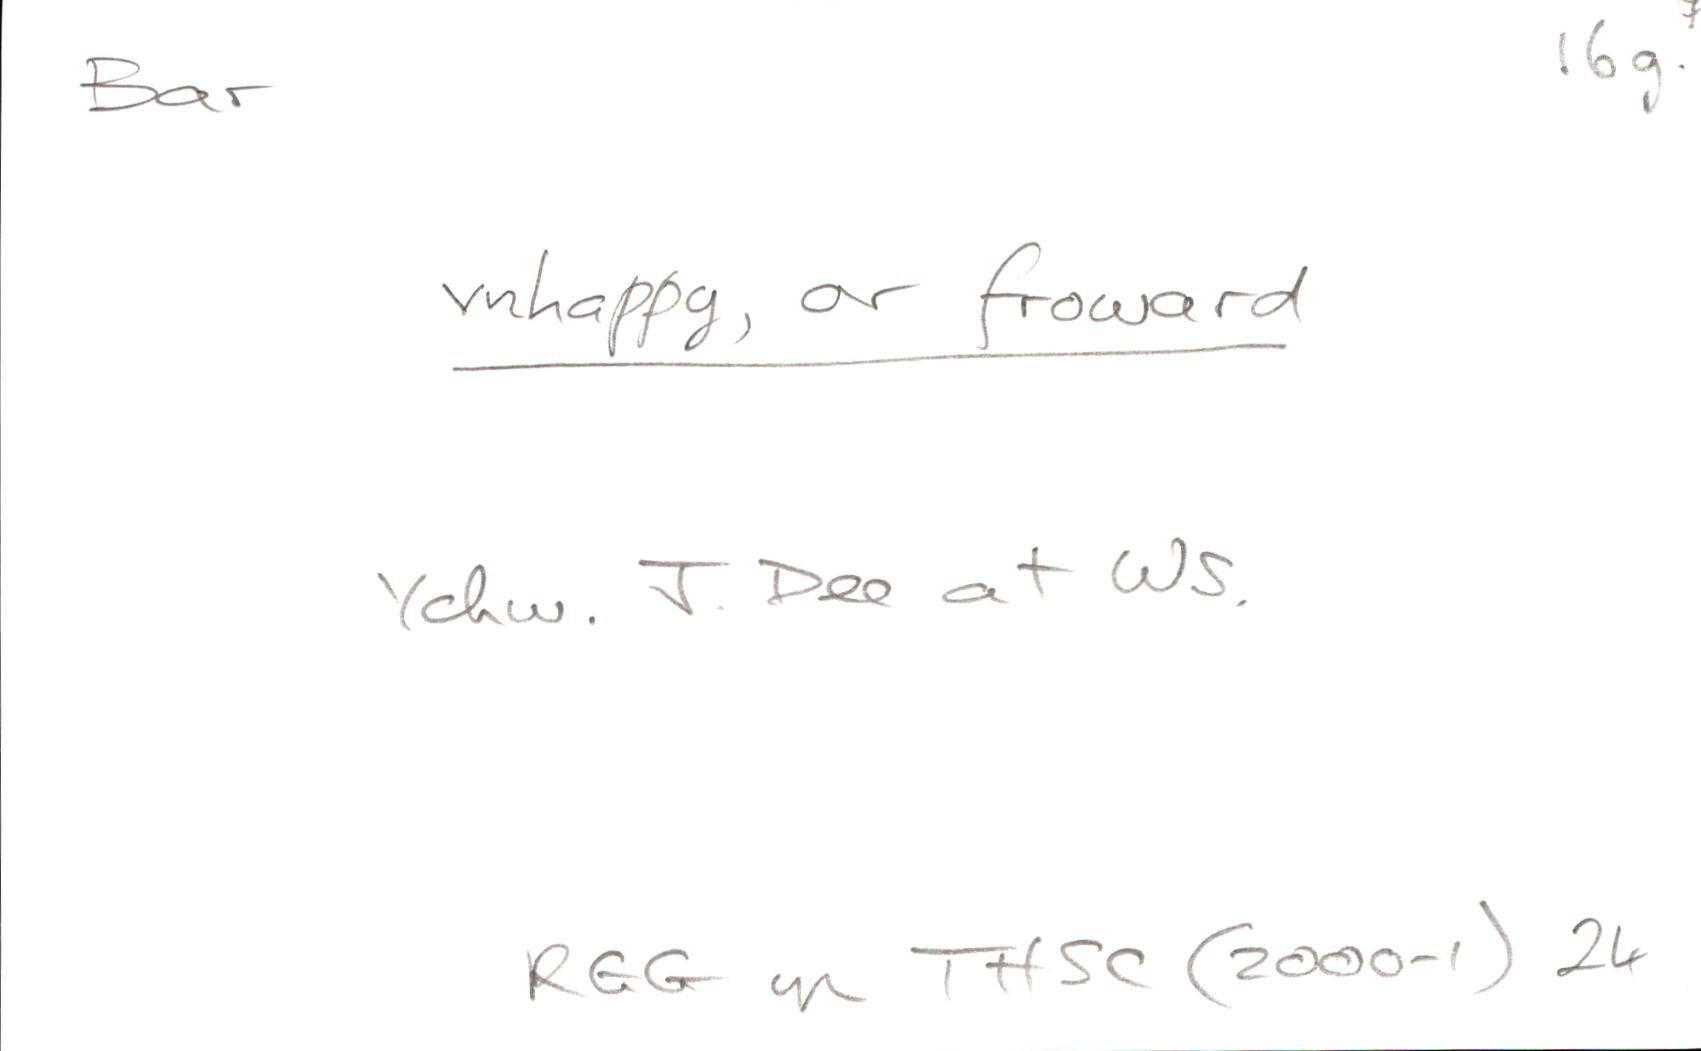 Bar 16g.
vnhappy, or froward
Ychw. J. Dee at WS.
RGG yn THSC (2000-1) 24